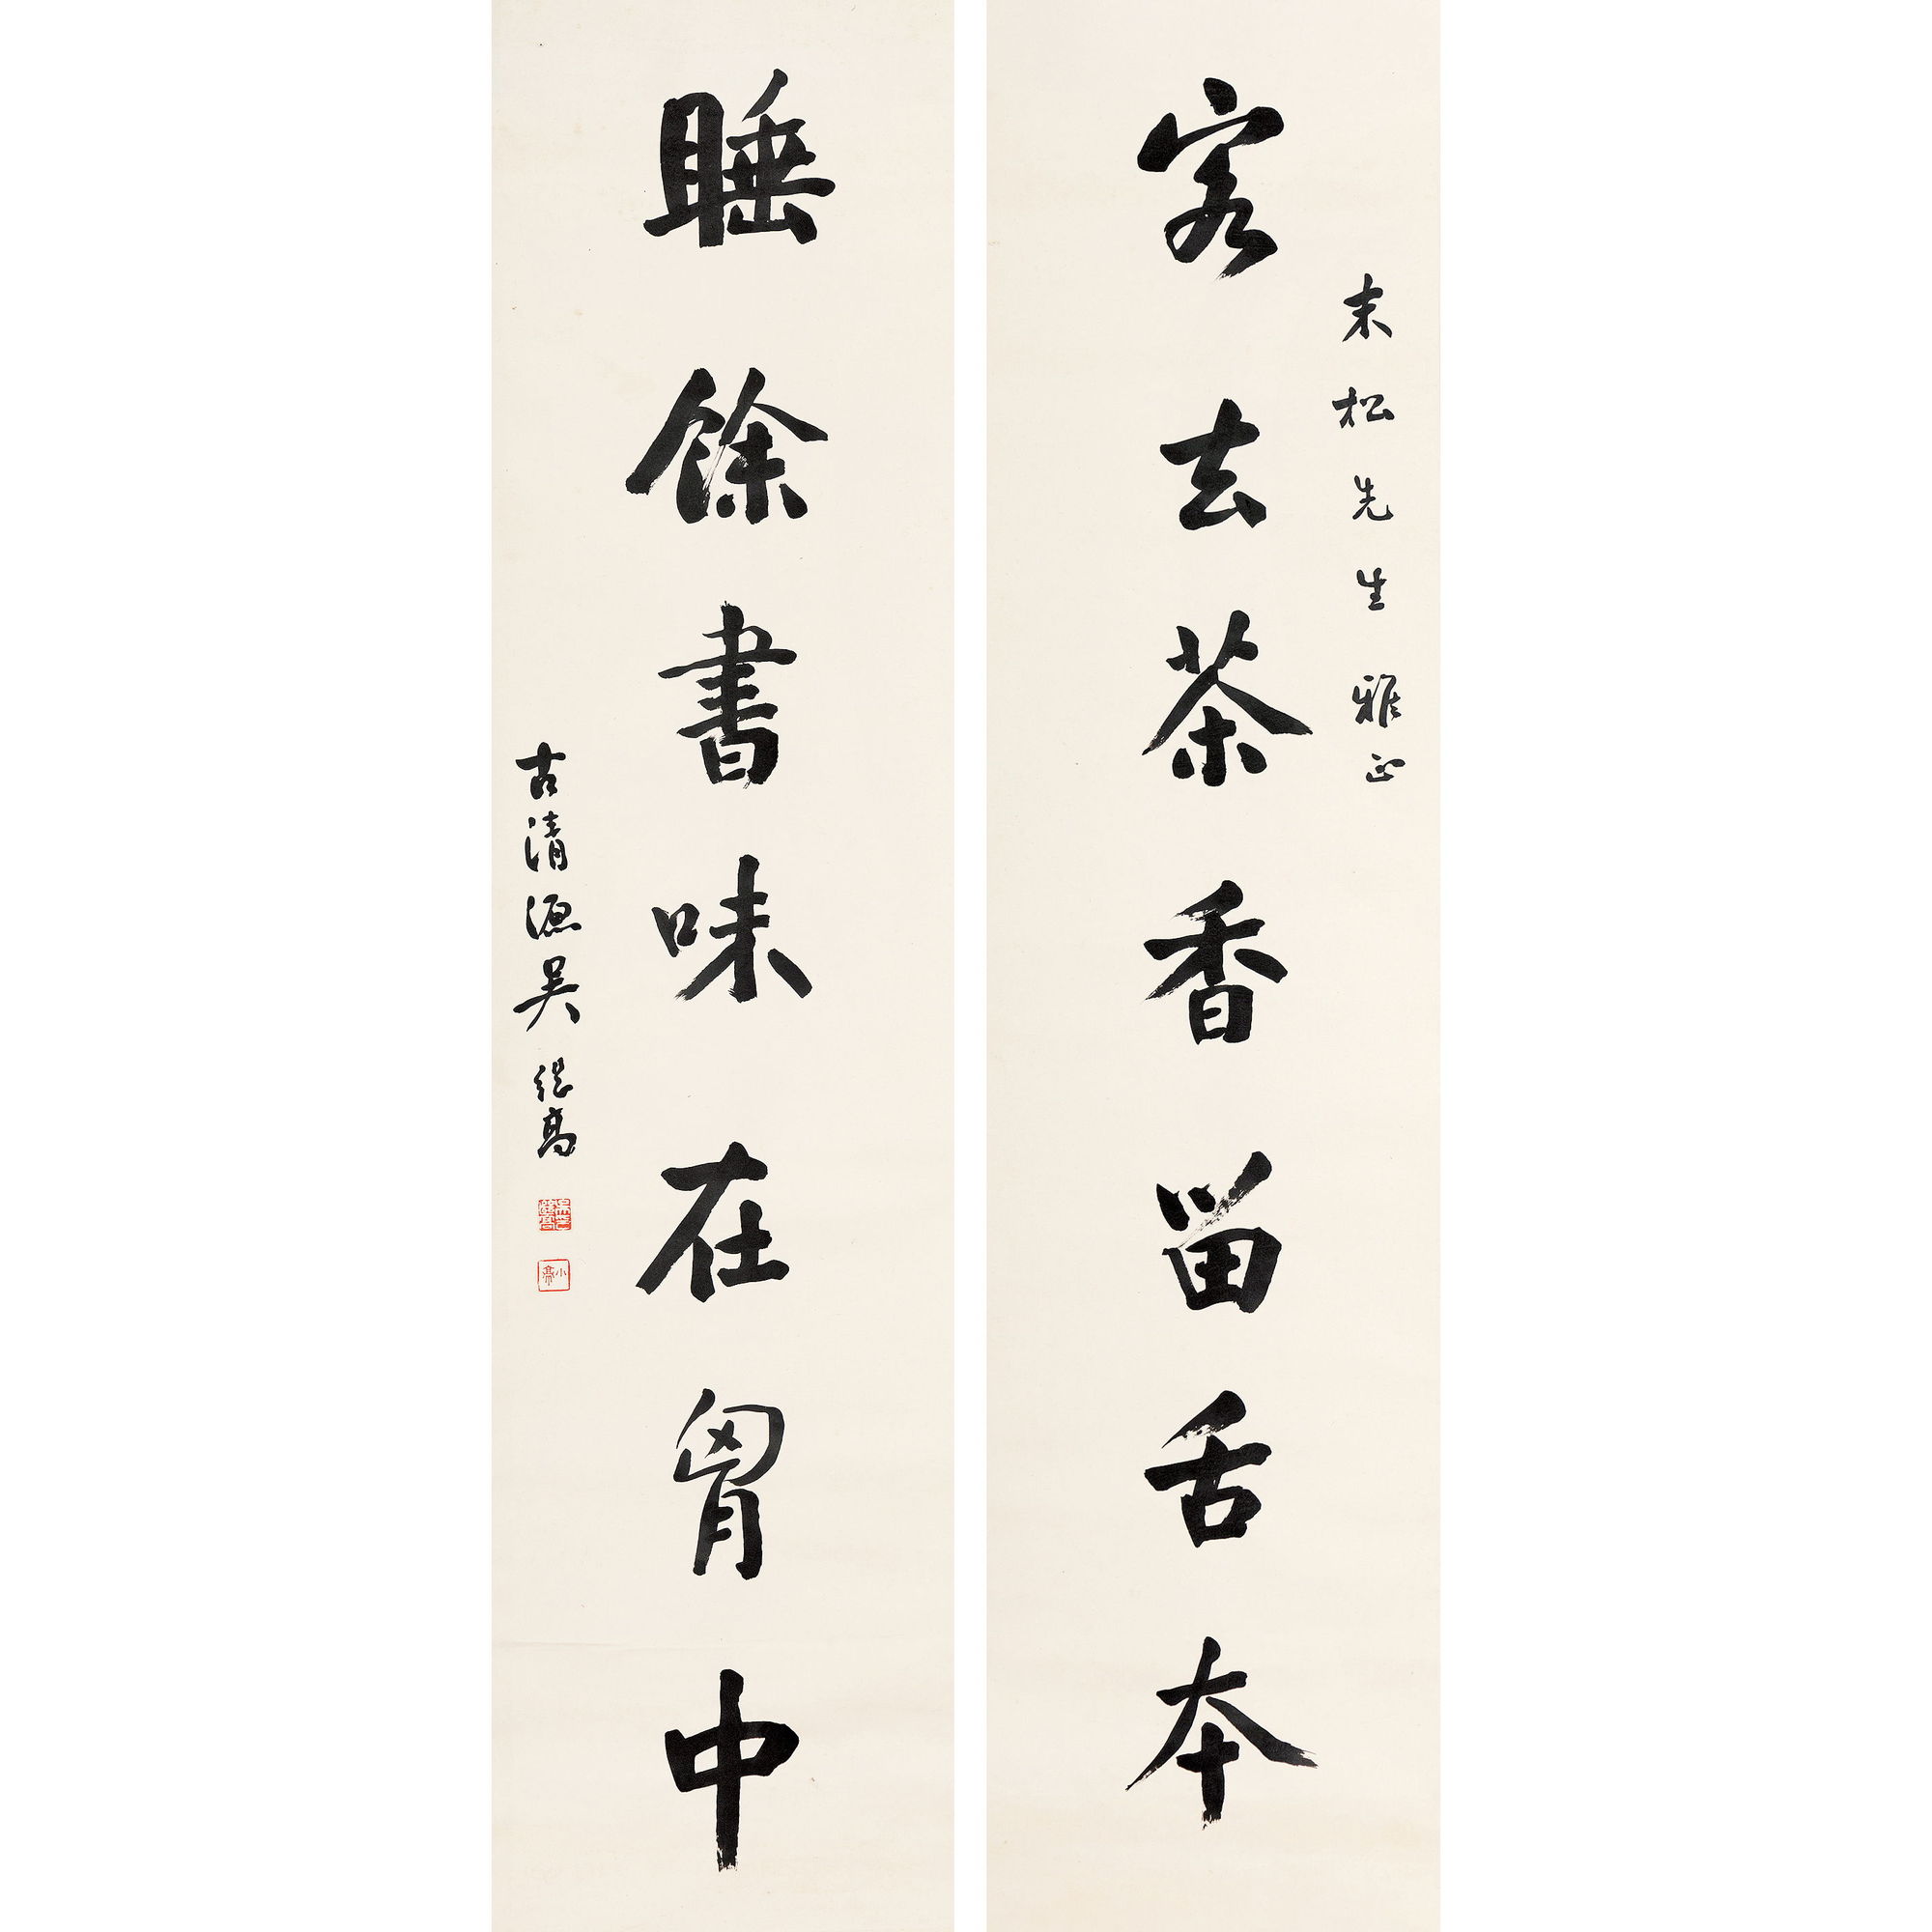 末松先生雅正
客去茶香留舌本
睡餘書味在胷中
古清源吳